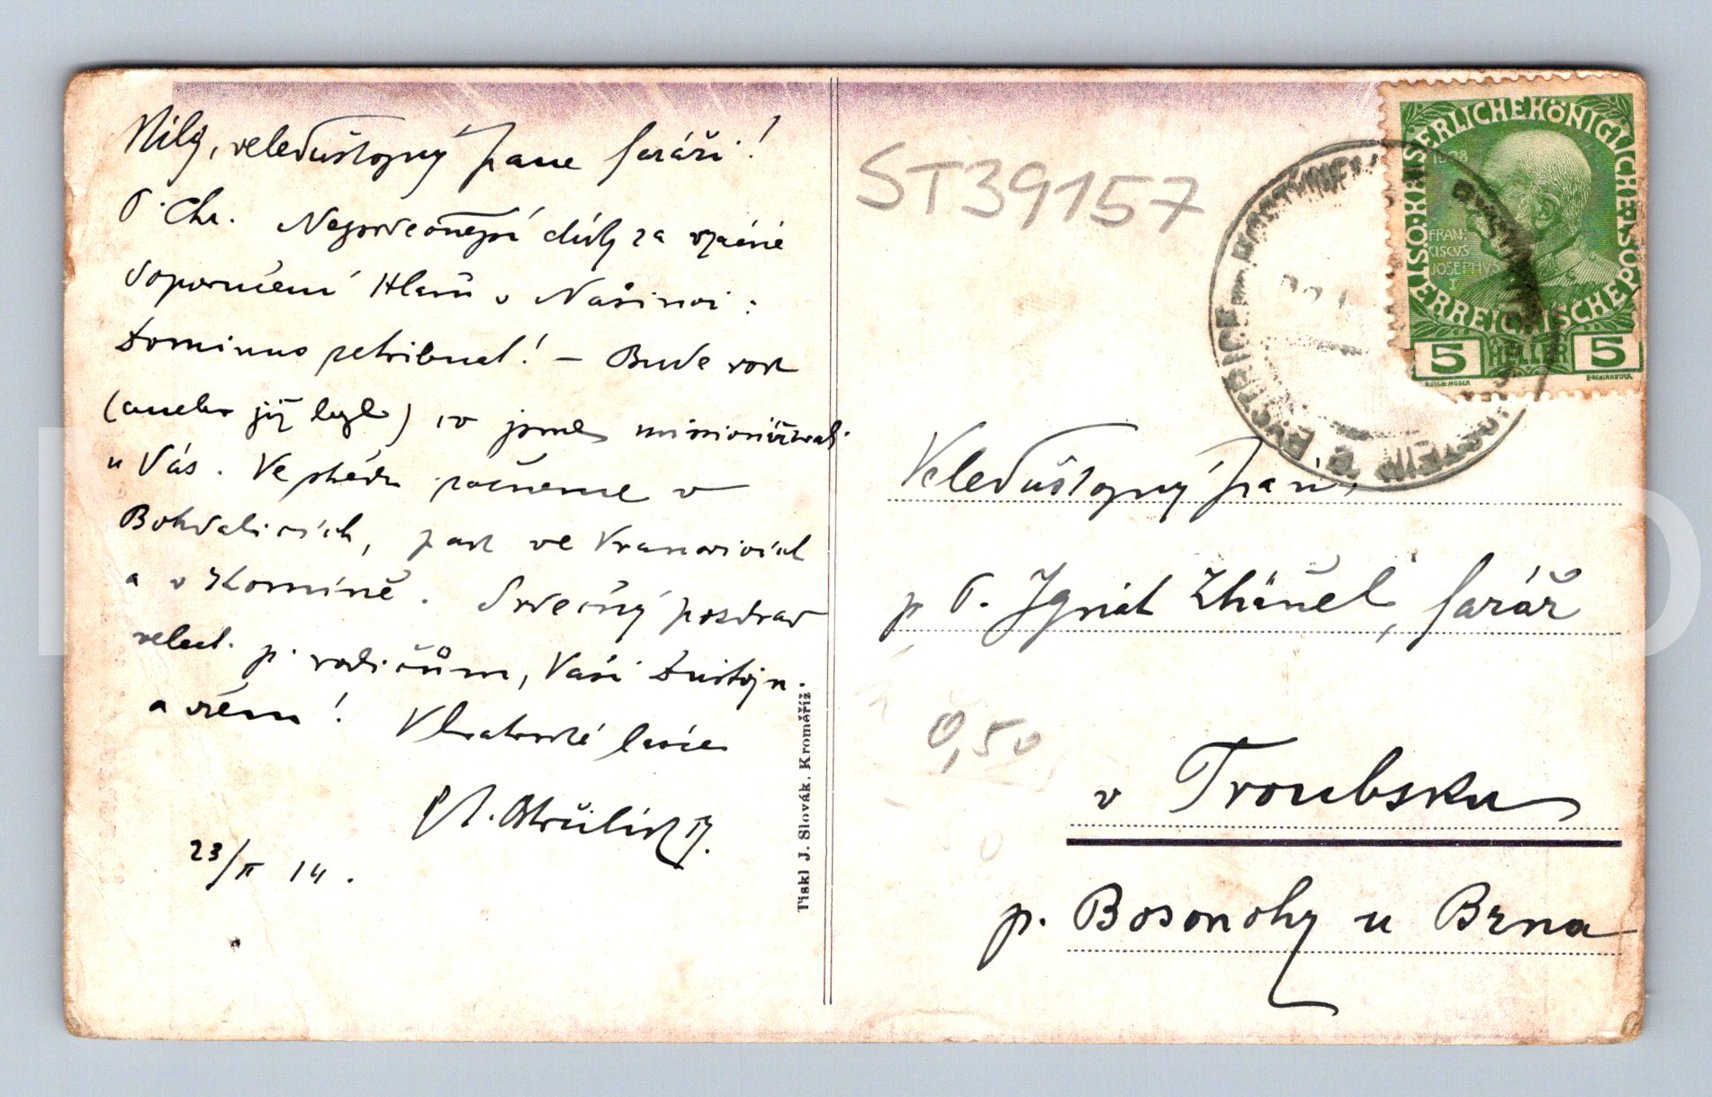 Milý, veledůstojný pane faráři!
P. Chr. Nejsrdečnější díky za vzácné
doporučení Hlasů v Našinci:
Dominus retribuat! – Bude rok
(aneb již byl) co jsme misionářovali
u Vás. Ve středu začneme v
Bohdalicích, pak ve Vranovicích
a v Komíně. Srdečný pozdrav
velect. p. rodičům, Vaší Důstojn.
a všem! V bratrské lásce
23/II 14.
Tiskl J. Slovák, Kroměříž
ST39157
KAISERLICHE KÖNIGLICHE ÖSTERREICHISCHE POST
1908
FRANCISCVS JOSEPHVS I
5 HELLER 5
BYSTŘICE HOSTÝNEM
Veledůstojný pan,
p. P. Ignát Zháněl, farář
0,50
v Troubsku
p. Bosonohy u Brna